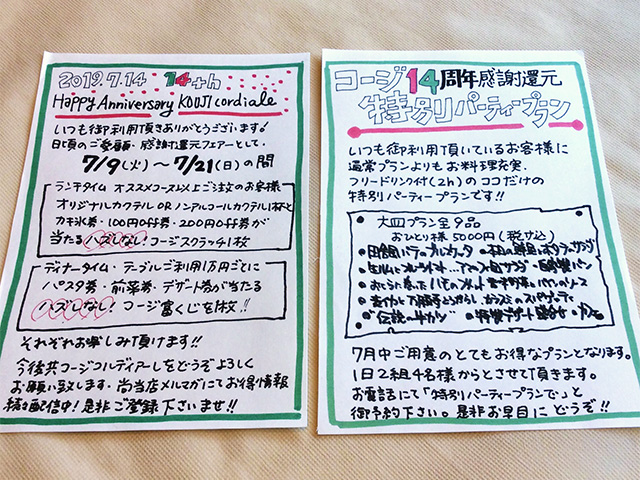 2019.7.14 14th
Happy Anniversary KOUJI cordiale
いつも御利用頂きありがとうございます!
日頃のご愛顧・感謝還元フェアーとして、
7/9(火)〜7/21(日)の間
ランチタイム オススメコース以上ご注文のお客様
オリジナルカクテル OR ノンアルコールカクテル1杯と
カキ氷券・100円off券・200円off券が
当たるハズレなし!コージスクラッチ1枚
ディナータイム・テーブルご利用1万円ごとに
パスタ券・前菜券・デザート券が当たる
ハズレなし! コージ富くじを1枚!!
それぞれお楽しみ頂けます!!
今後共コージコルディアーレをどうぞよろしく
お願い致します。尚当店メルマガにてお得情報
続々配信中!是非ご登録下さいませ!!
コージ14周年感謝還元
特別パーティープラン
いつも御利用頂いているお客様に
通常プランよりもお料理充実、
フリードリンク付(2h)のココだけの
特別パーティープランです!!
大皿プラン全9品
おひとり様 5000円(税サ込)
7月中ご用意のとてもお得なプランとなります。
1日2組4名様からとさせて頂きます。
お電話にて「特別パーティープランで」と
御予約下さい。是非お早目にどうぞ!!